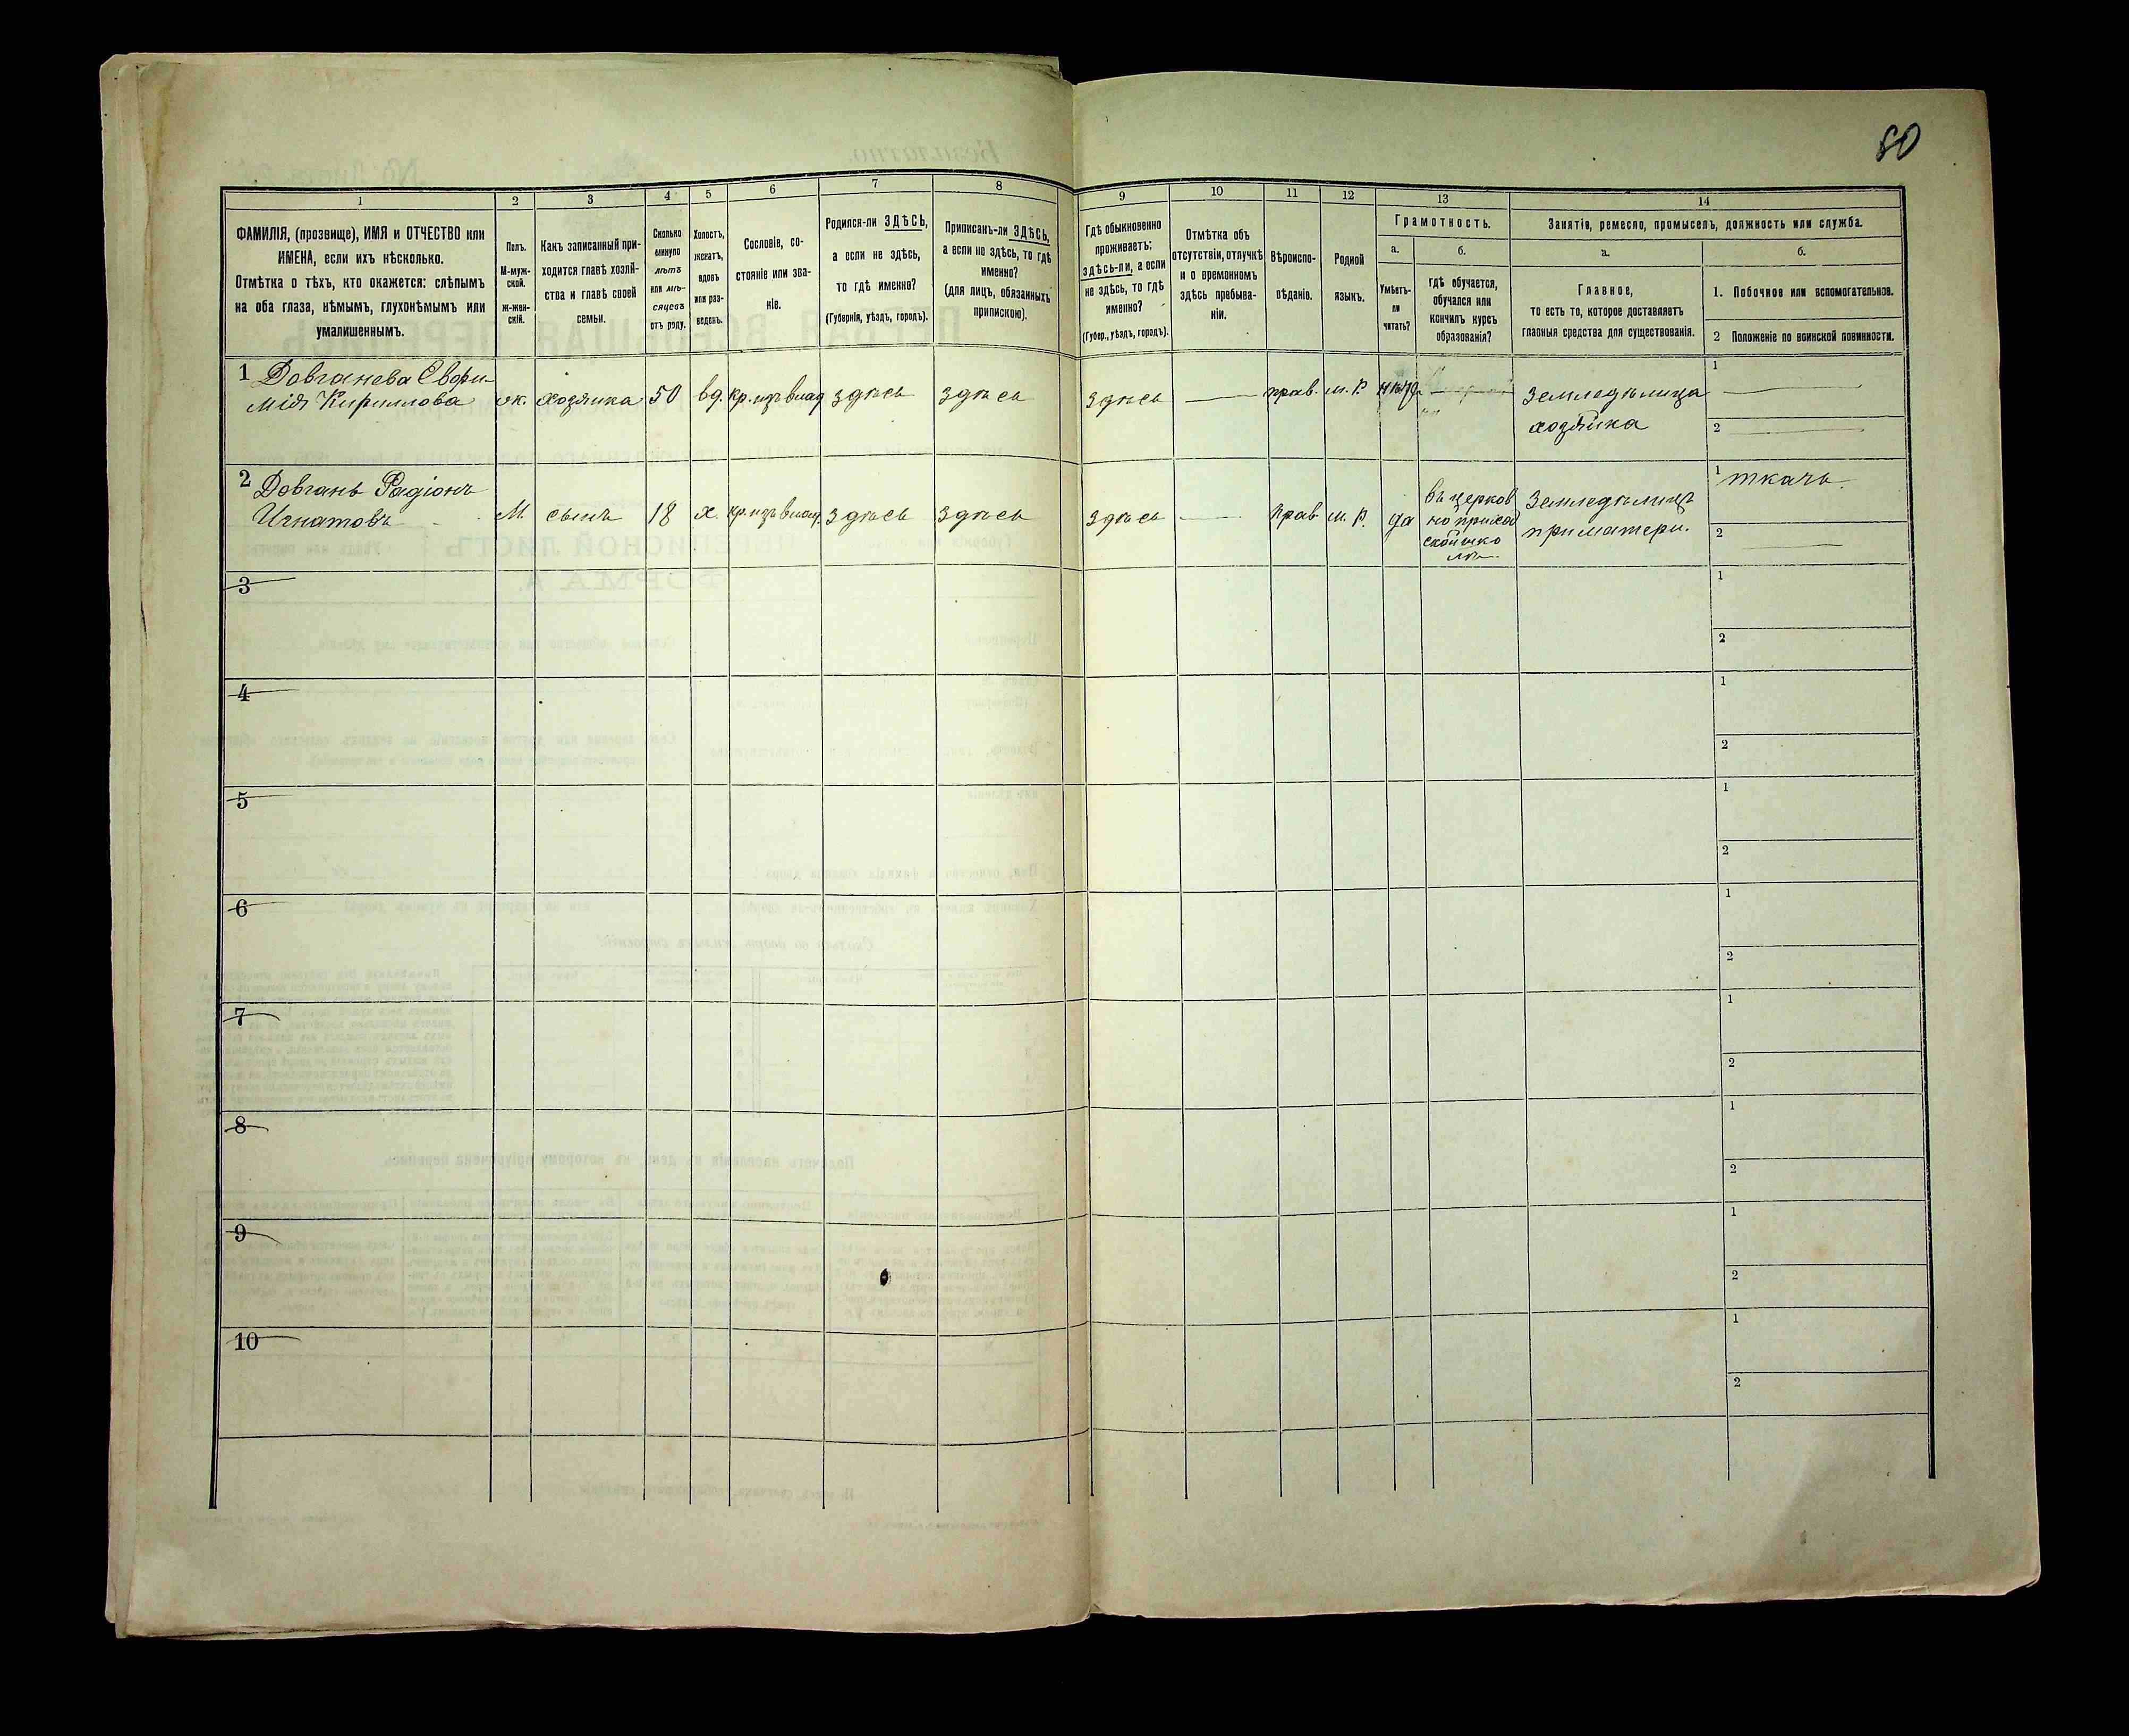 80
1 2 3 4 5 6 7 8 9 10 11 12 13 14
ФАМИЛІЯ, (прозвище), ИМЯ и ОТЧЕСТВО или
ИМЕНА, если ихъ нѣсколько.
Отмѣтка о тѣхъ, кто окажется: слѣпымъ
на оба глаза, нѣмымъ, глухонѣмымъ или
умалишеннымъ.
Полъ.
М-муж-
ской.
Ж-жен-
скій.
Какъ записанный при-
ходится главѣ хозяй-
ства и главѣ своей
семьи.
Сколько
минуло
лѣтъ
или мѣ-
сяцевъ
отъ роду.
Холостъ,
женатъ,
вдовъ
или раз-
веденъ.
Сословіе, со-
стояніе или зва-
ніе.
Родился-ли ЗДѢСЬ,
а если не здѣсь,
то гдѣ именно?
(Губернія, уѣздъ, городъ).
Приписанъ-ли ЗДѢСЬ,
а если не здѣсь, то гдѣ
именно?
(для лицъ, обязанныхъ
припискою).
Гдѣ обыкновенно
проживаетъ:
здѣсь-ли, а если
не здѣсь, то гдѣ
именно?
(Губер., уѣздъ, городъ).
Отмѣтка объ
отсутствіи, отлучкѣ
и о временномъ
здѣсь пребыва-
ніи.
Вѣроиспо-
вѣданіе.
Родной
языкъ.
Грамотность.
а.
Умѣетъ-
ли
читать?
б.
гдѣ обучается,
обучался или
кончилъ курсъ
образованія?
Занятіе, ремесло, промыселъ, должность или служба.
а.
Главное,
то есть то, которое доставляетъ
главныя средства для существованія.
б.
1. Побочное или вспомогательное.
2 Положеніе по воинской повинности.
1 Довганева Евфи-
мія Кириллова
ж.
хозяйка
50
вд.
кр. изъ влад
здѣсь
здѣсь
здѣсь
прав.
м. р.
нѣтъ
Земледѣлица
хозяйка
1
2
2 Довгань Радіонъ
Игнатовъ
М.
сынъ
18
х.
кр. изъ влад.
здѣсь
здѣсь
здѣсь
прав
м. р.
да
въ церков
но приход
ской шко
лѣ
Земледѣлицъ
при матери.
1 ткачъ.
2
3
1
2
4
1
2
5
1
2
6
1
2
7
1
2
8
1
2
9
1
2
10
1
2